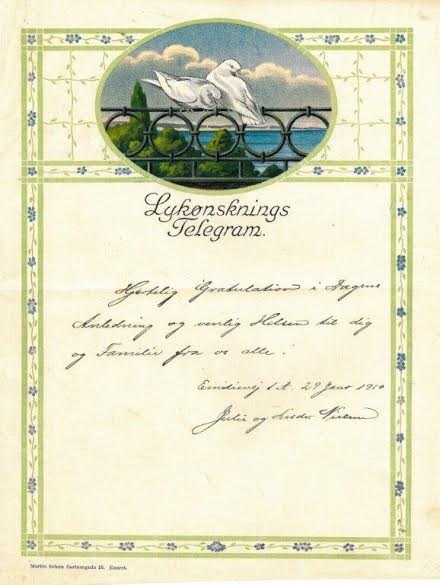 Lykønsknings
Telegram.
Hjertelig Gratulation i Dagens
Anledning og venlig Hilsen til dig
og Familie fra os alle.
29 1910
Julie og Nielsen
Martin Schou Gothersgade 15. Eneret.